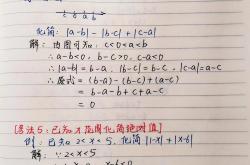 c b a b
化简：|a-b| - |b-c| + |c-a|
解：由图可知，c<0<a<b
∴ a-b<0，b-c>0，c-a<0
∴ |a-b| = b-a，|b-c| = b-c，|c-a| = a-c
∴ 原式 = (b-a) - (b-c) + (a-c)
= b-a-b+c+a-c
= 0
[考法5：已知x范围化简绝对值]
例：已知2<x<5，化简|1-x|+|x-6|
解：∵ 2<x<5